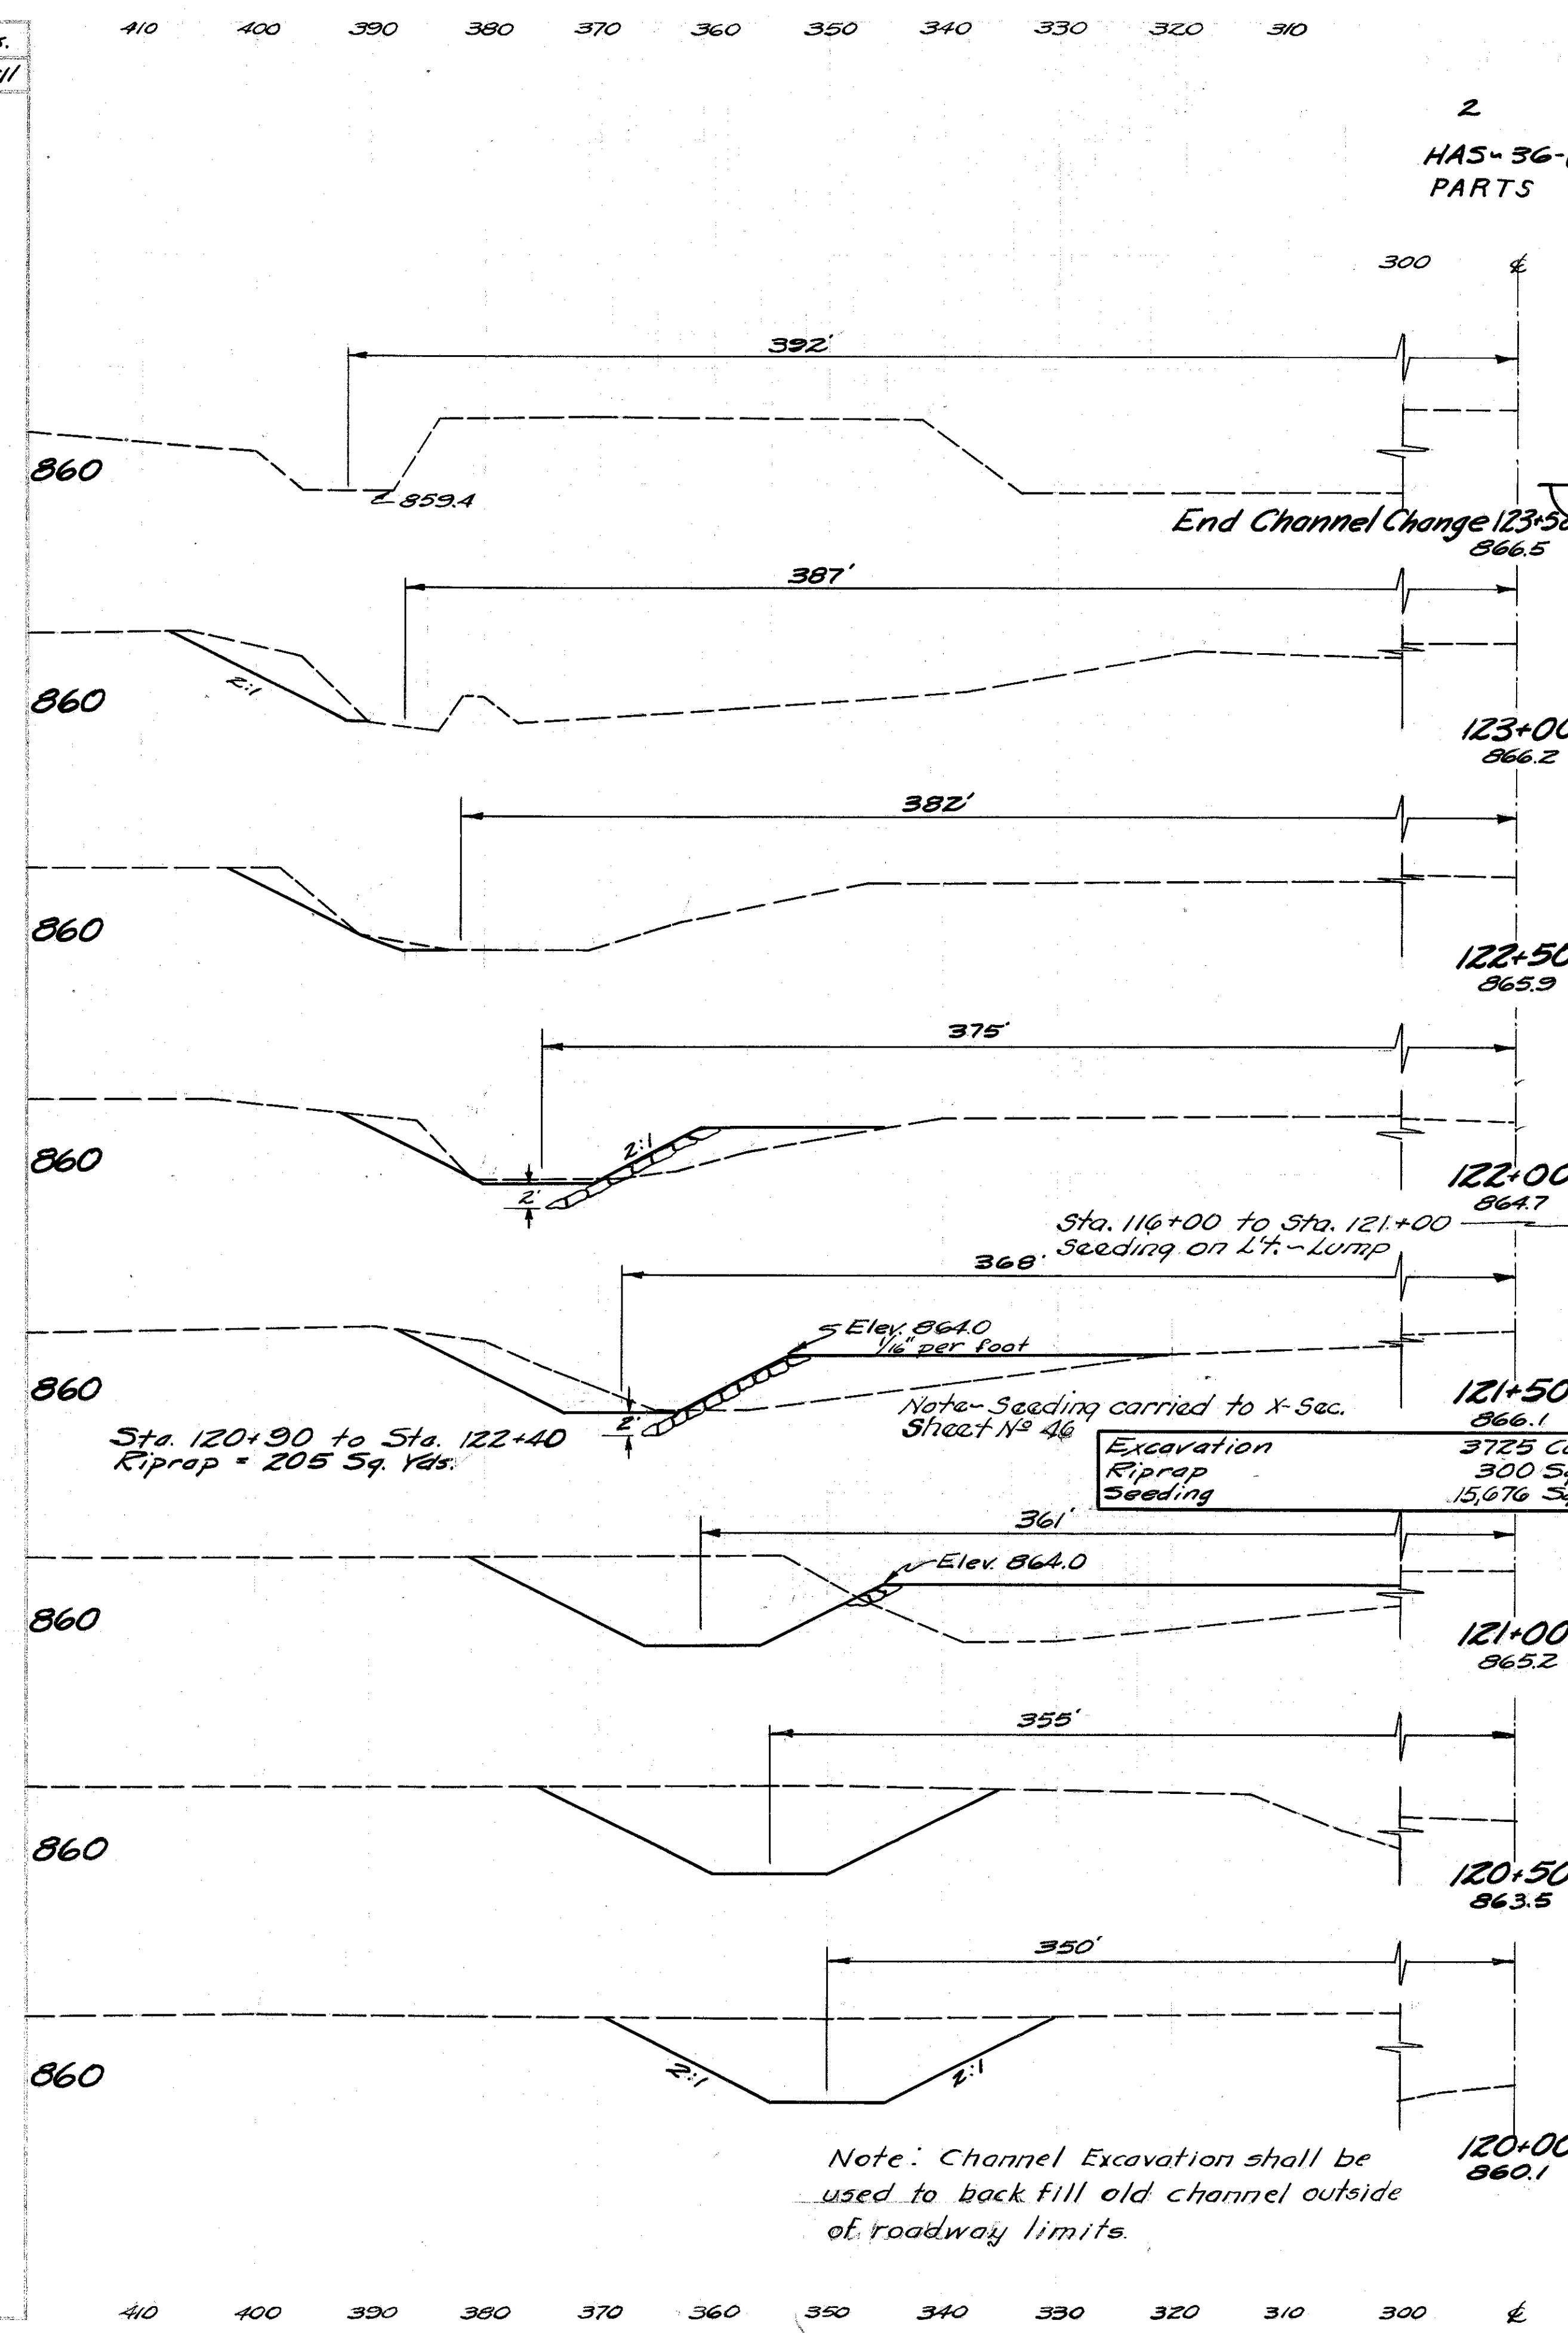 410 400 390 380 370 360 350 340 330 320 310
2
HAS-36-
PARTS
300 ℄
392'
860
859.4
End Channel Change 123+58
866.5
387'
2:1
860
123+00
866.2
382'
860
122+50
865.9
375'
2:1
860
2'
122+00
864.7
Sta. 116+00 to Sta. 121+00
Seeding on L't.-Lump
368'
Elev. 864.0
1/16" per foot
860
2'
Note-Seeding carried to X-Sec.
Sheet Nº 46
121+50
866.1
Sta. 120+90 to Sta. 122+40
Riprap = 205 Sq. Yds.
Excavation 3725
Riprap 300
Seeding 15,676
361'
Elev. 864.0
860
121+00
865.2
355'
860
120+50
863.5
350'
860
2:1 2:1
120+00
860.1
Note: Channel Excavation shall be
used to back fill old channel outside
of roadway limits.
410 400 390 380 370 360 350 340 330 320 310 300 ℄